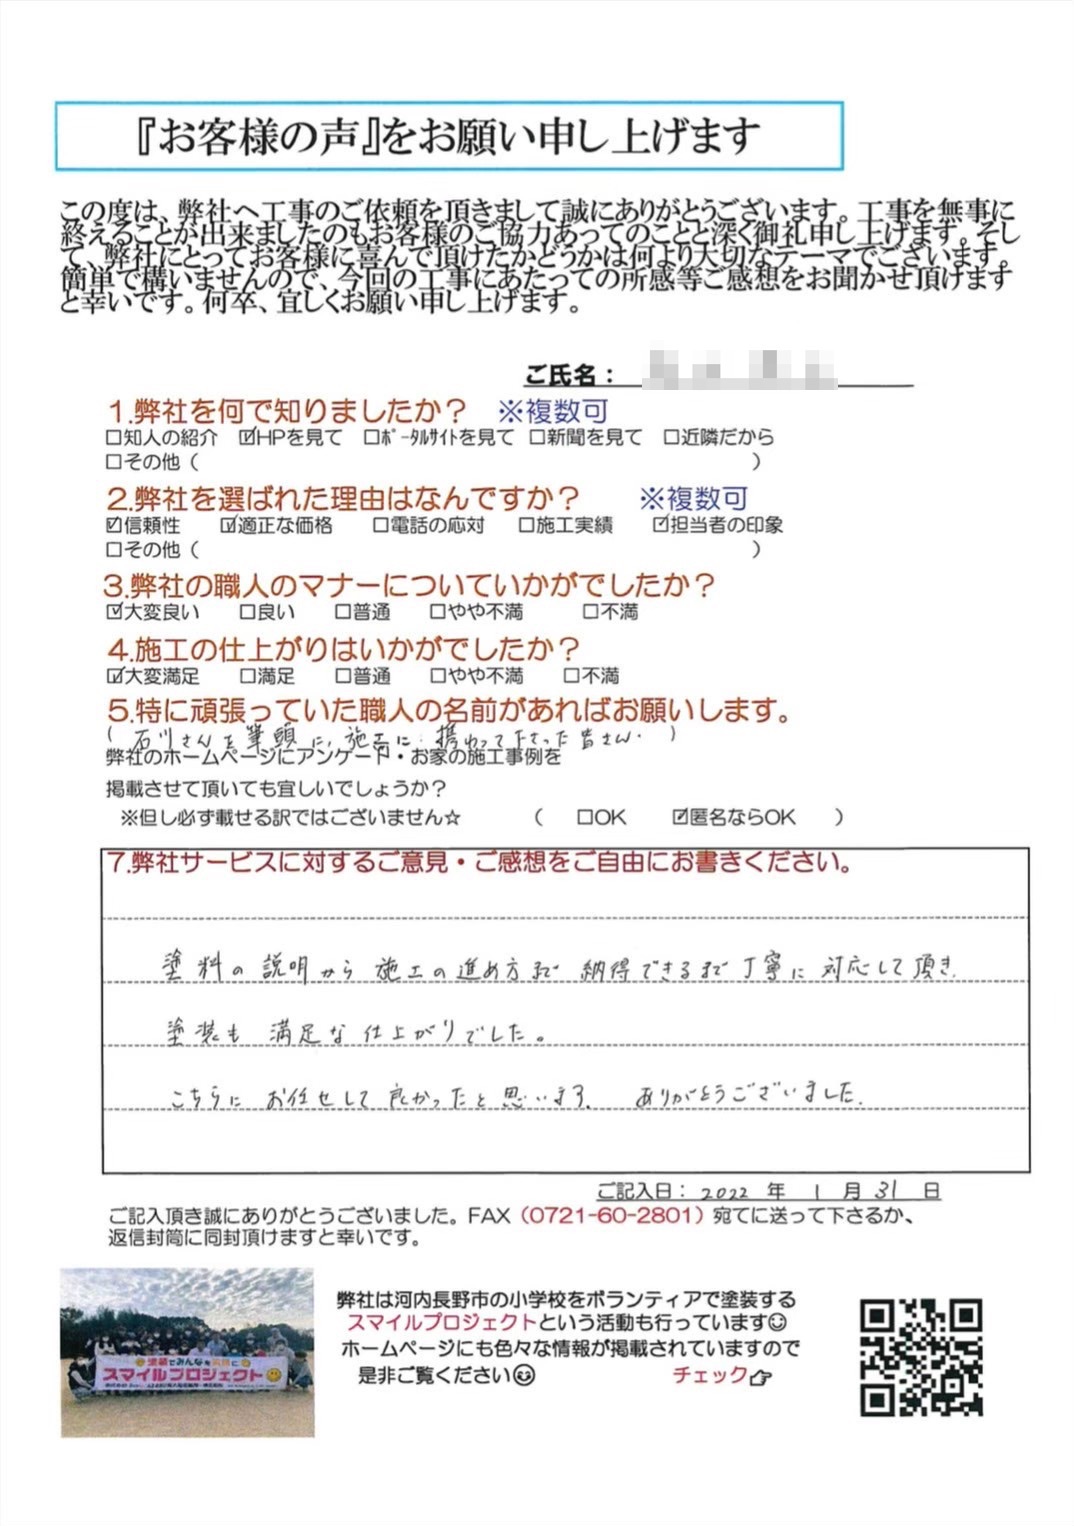 『お客様の声』をお願い申し上げます
この度は、弊社へ工事のご依頼を頂きまして誠にありがとうございます。工事を無事に
終えることが出来ましたのもお客様のご協力あってのことと深く御礼申し上げます。そし
て、弊社にとってお客様に喜んで頂けたかどうかは何より大切なテーマでございます。
簡単で構いませんので、今回の工事にあたっての所感等ご感想をお聞かせ頂けます
と幸いです。何卒、宜しくお願い申し上げます。
ご氏名：
1.弊社を何で知りましたか？ ※複数可
□知人の紹介 ☑HPを見て □ﾎﾟｰﾀﾙｻｲﾄを見て □新聞を見て □近隣だから
□その他（ ）
2.弊社を選ばれた理由はなんですか？ ※複数可
☑信頼性 ☑適正な価格 □電話の応対 □施工実績 ☑担当者の印象
□その他（ ）
3.弊社の職人のマナーについていかがでしたか？
☑大変良い □良い □普通 □やや不満 □不満
4.施工の仕上がりはいかがでしたか？
☑大変満足 □満足 □普通 □やや不満 □不満
5.特に頑張っていた職人の名前があればお願いします。
（石川さんを筆頭に、施工に携わって下さった皆さん。）
弊社のホームページにアンケート・お家の施工事例を
掲載させて頂いても宜しいでしょうか？
※但し必ず載せる訳ではございません☆ （ □OK ☑匿名ならOK ）
7.弊社サービスに対するご意見・ご感想をご自由にお書きください。
塗料の説明から施工の進め方まで納得できるまで丁寧に対応して頂き、
塗装も満足な仕上がりでした。
こちらにお任せして良かったと思います。ありがとうございました。
ご記入日：2022年 1月 31日
ご記入頂き誠にありがとうございました。FAX（0721-60-2801）宛てに送って下さるか、
返信封筒に同封頂けますと幸いです。
塗装でみんなを笑顔に
スマイルプロジェクト
弊社は河内長野市の小学校をボランティアで塗装する
スマイルプロジェクトという活動も行っています☺
ホームページにも色々な情報が掲載されていますので
是非ご覧ください☺ チェック☞